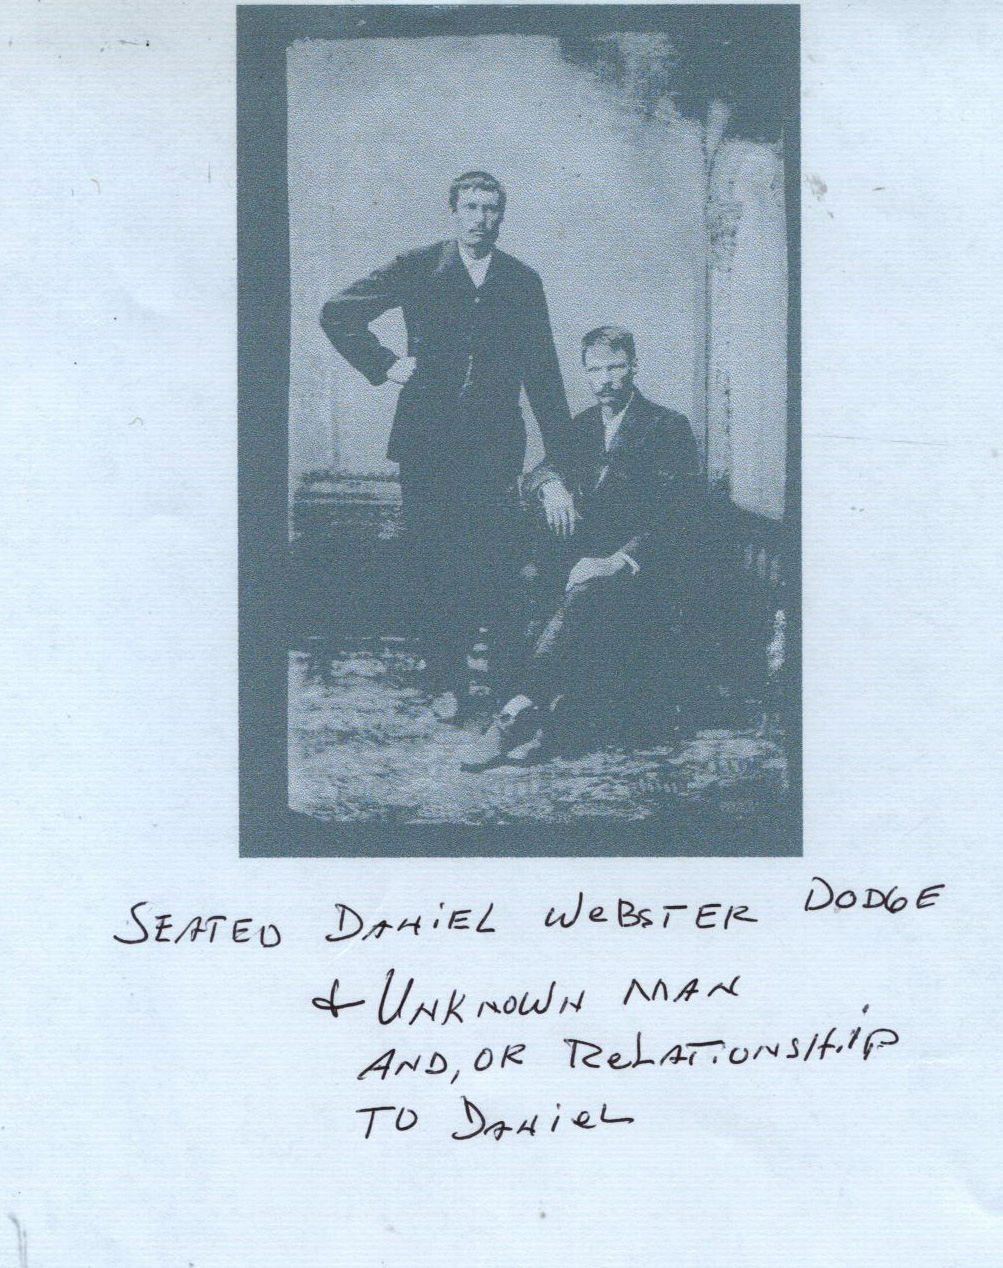 SEATED DANiEL WeBSTER DODGE
+ UNKNOWN MAN
AND, OR ReLATiONSHiP
TO DANieL